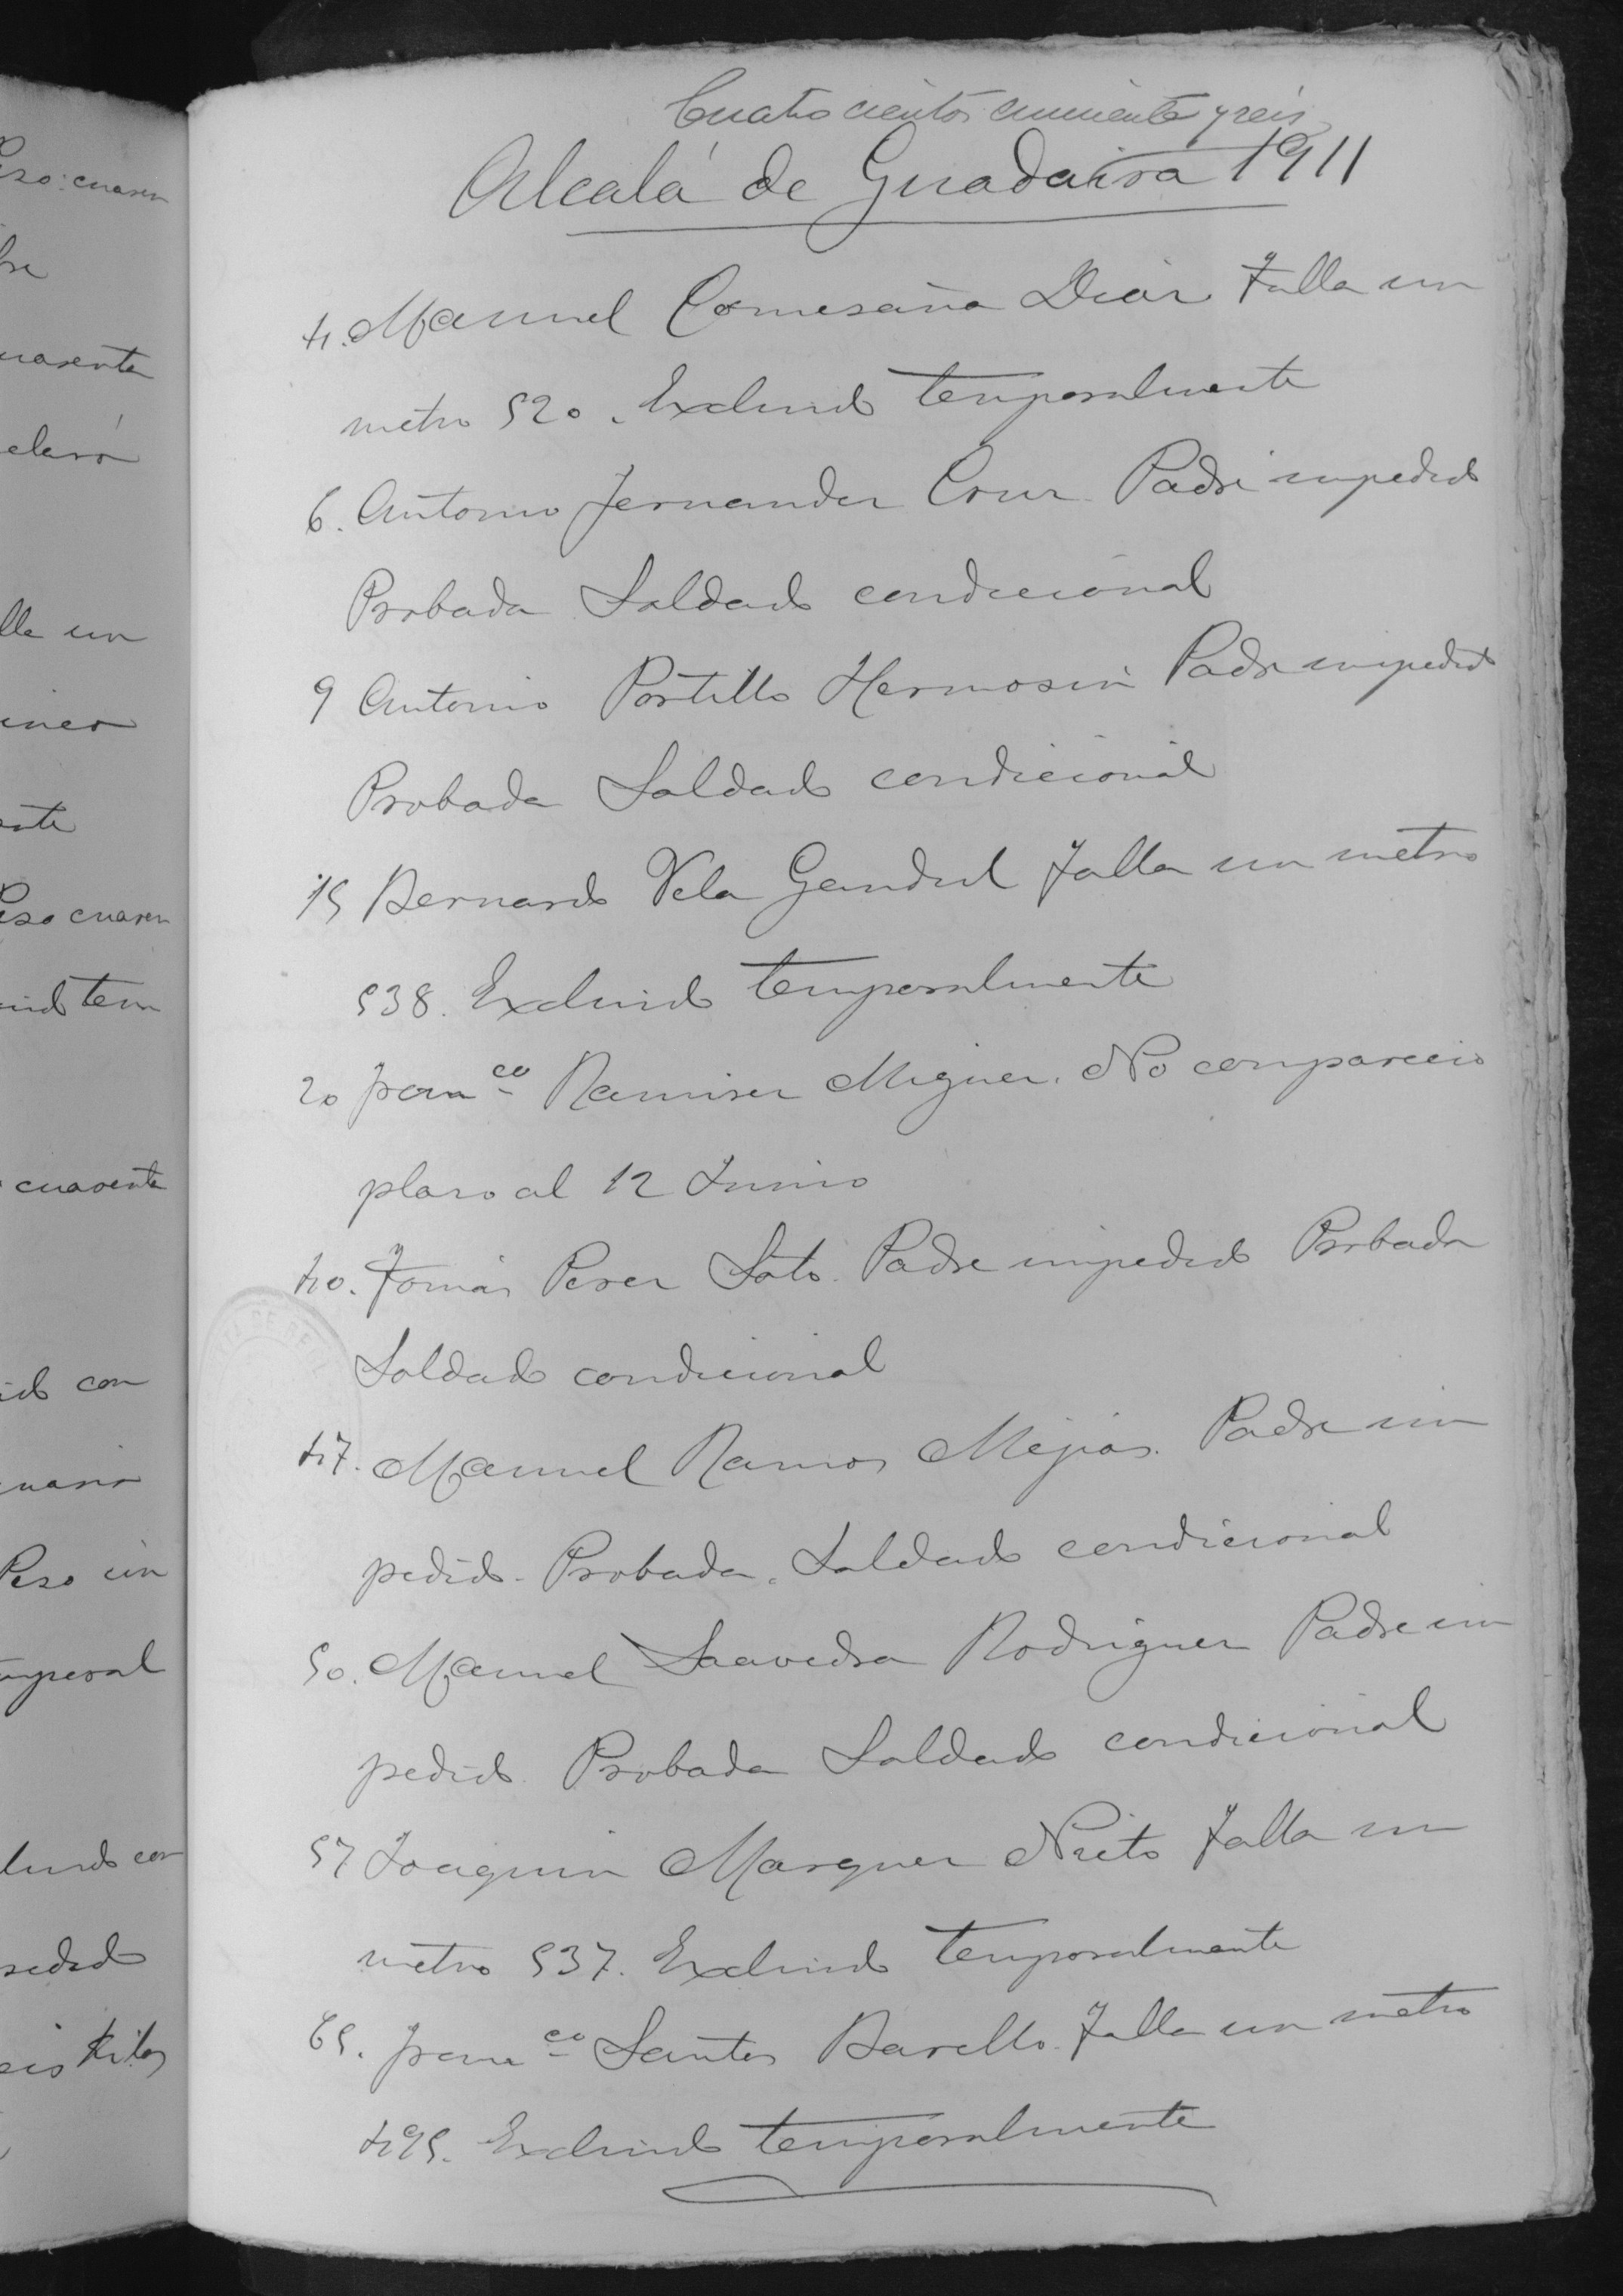 Cuatrocientos cincuenta y seis
Alcalá de Guadaira 1911
4. Manuel Comesaña Diaz Talla un
metro 520. Excluido temporalmente
6. Antonio Fernandez Cruz Padre impedido
Probada Soldado condicional
9 Antonio Portillo Hermosin Padre impedido
Probada Soldado condicional
15 Bernardo Vela Gandul Talla un metro
538. Excluido temporalmente
20 Franco Ramirez Miguez. No compareció
plazo al 12 Junio
40. Tomás Perez Soto. Padre impedido Probada
Soldado condicional
47. Manuel Ramos Mejias. Padre im
pedido. Probada. Soldado condicional
50. Manuel Saavedra Rodriguez Padre im
pedido. Probada Soldado condicional
57 Joaquin Marquez Nieto Talla un
metro 537. Excluido temporalmente
65. Franco Santos Talla un metro
495. Excluido temporalmente
eso: cuaren
uarenta
claró
lle un
inco
Peso cuaren
uido tem
cuarenta
ido con
Peso un
emporal
luido con
eis Kilos